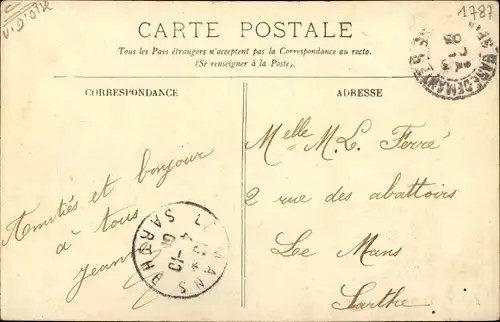 V. D'OISE
1787
CARTE POSTALE
Tous les Pays étrangers n'acceptent pas la Correspondance au recto.
(Se renseigner à la Poste).
CORRESPONDANCE
ADRESSE
Amitiés et bonjour
à tous
Jeanne
Melle M. L. Ferré
2 rue des abattoirs
Le Mans
Sarthe
LE MANS
SARTHE